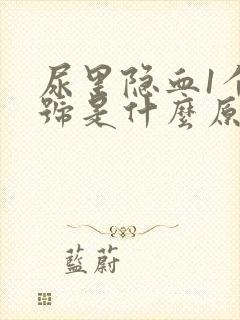 尿里隐血1个
號是什麽原
藍蔚